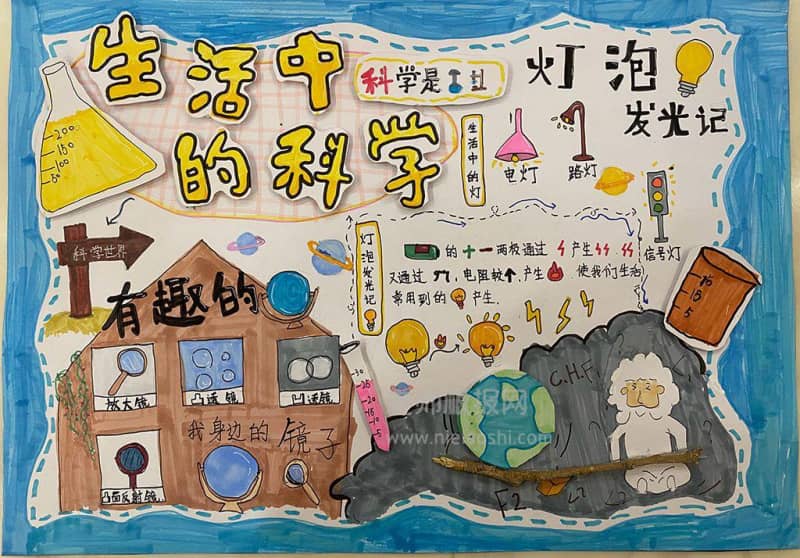 生活中
的科学
科学是
灯泡
发光记
200
150
100
50
生活中的灯
电灯
路灯
信号灯
科学世界
有趣的
灯泡发光记
的 + 一 两极通过 产生
又通过 电阻较 产生 使我们生活
常用到的 产生.
放大镜
凸透镜
凹透镜
我身边的镜子
凸面反射镜
30
25
20
15
10
5
15
5
C.H.F
F2
师板报网